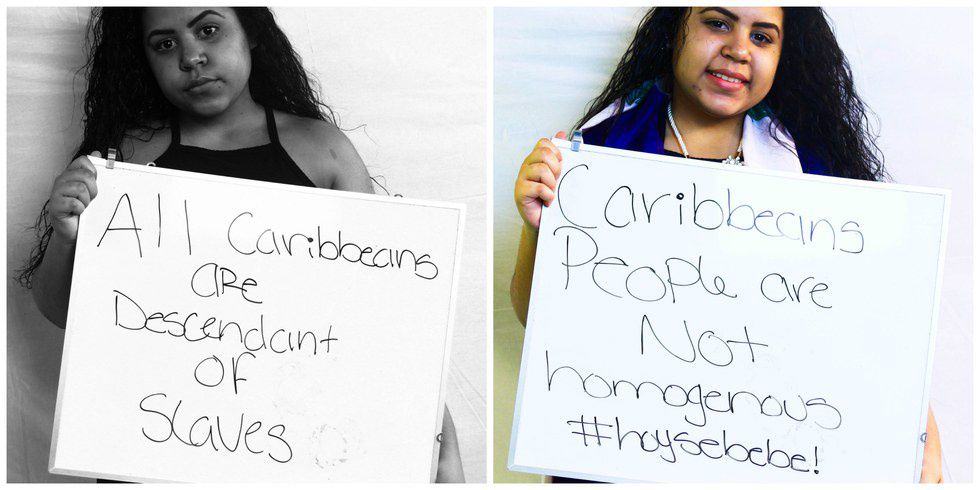 All Caribbeans
are
Descendant
of
Slaves
Caribbeans
People are
Not
homogenous
#hoysebebe!